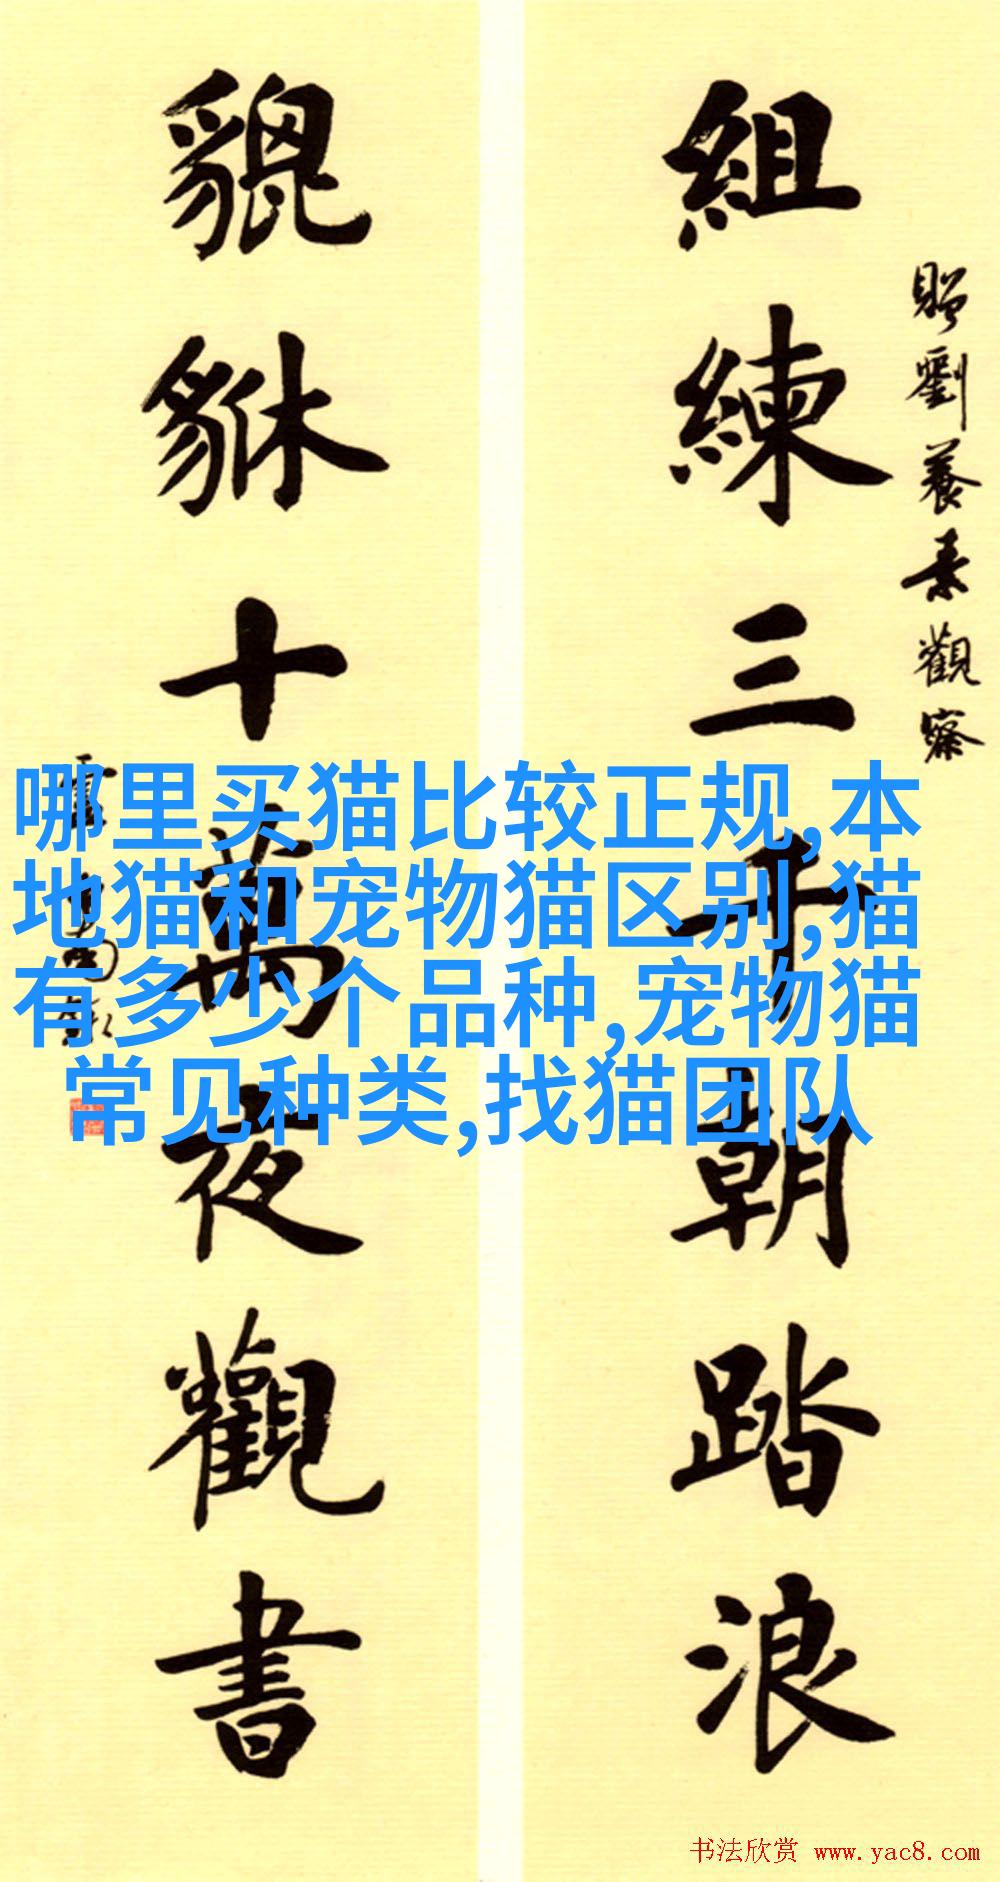 贈劉養素觀察
組練三千朝踏浪
貔貅十萬夜觀書
哪里买猫比较正规,本
地猫和宠物猫区别,猫
有多少个品种,宠物猫
常见种类,找猫团队
书法欣赏 www.yac8.com